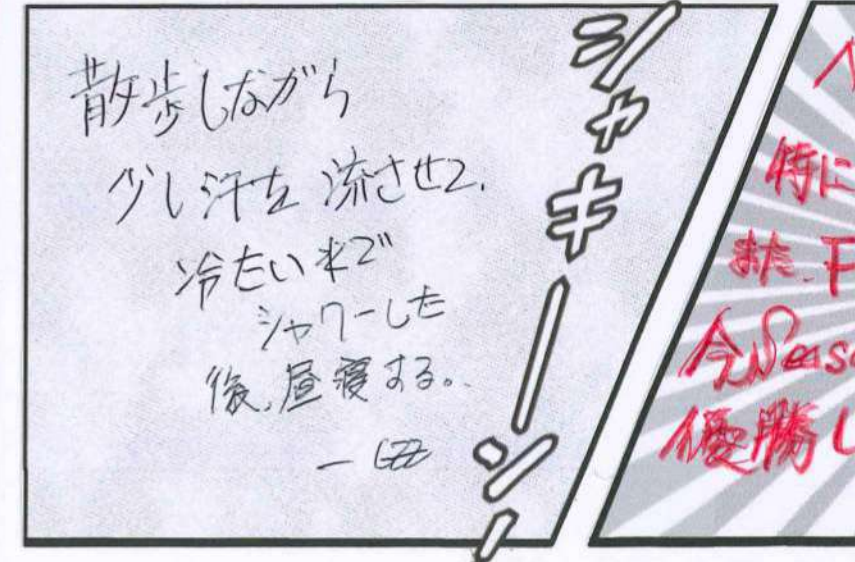 散歩しながら
少し汗を流させて、
冷たい水で
シャワーした
後、昼寝する。
シャキーン!
特に
また、F
今Seaso
優勝し